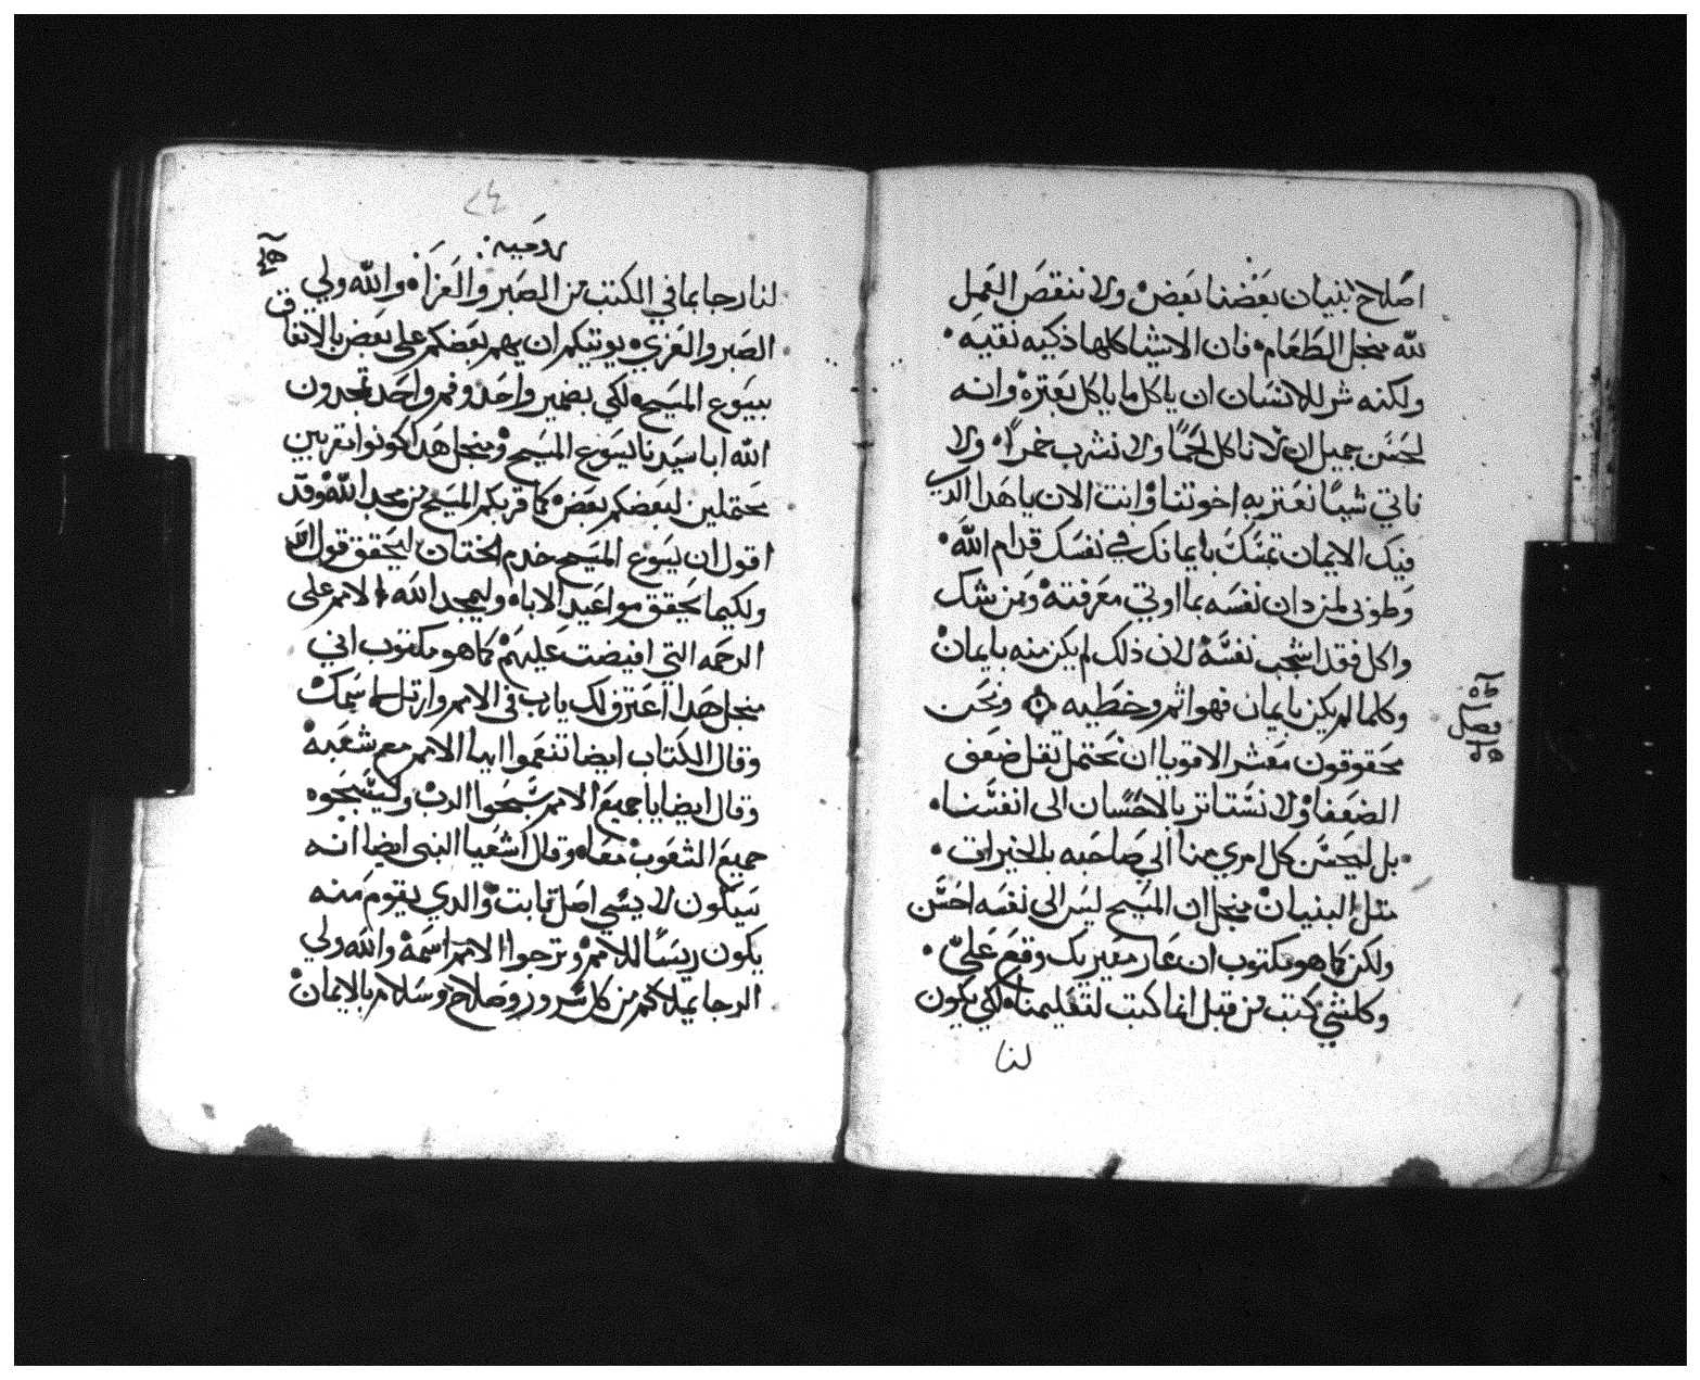 اصلاح بنيان بعضنا بعض ولا ننقص العمل
لله منجل الطعام فان الاشيا كلها ذكيه نقيه
ولكنه شر للانسان ان ياكل ما ياكل بعتره وانه
لحسن جميل ان لا ناكل لحمًا ولا نشرب خمرًا ولا
ناتي شيا نعتر به اخوتنا وانت الان يا هدا الدي
فيك الايمان تمسك بايمانك في نفسك قدام الله
وطوبى لمن دان نفسه بما اوتي معرفته ومن شك
واكل فقد اشجب نفسه لان ذلك لم يكن منه بايمان
وكلما لم يكن بايمان فهو اثم وخطيه ونحن
محقوقون معشر الاقويا ان نحتمل تقل ضعف
الضعفا ولا نستاتر بالاحسان الى انفسنا
بل ليحسن كل امري منا الي صاحبه بالخيرات
متل البنيان منجل ان المسيح ليس الى نفسه احسن
ولكن كما هو مكتوب ان عار معيريك وقع عليّ
وكلشي كتب من قبل انما كتب لتعليمنا لكي يكون
لنا
فصل
روميه
لنا رجا بما في الكتب من الصبر والعزاه والله ولي
الصبر والعزي يوتيكم ان يهم بعضكم على بعض بالاتفاق
بيسوع المسيح لكي بضمير واحد وفم واحد تمجدون
الله ابا سيدنا يسوع المسيح ومنجل هدا كونوا مقربين
محتملين لبعضكم بعض كما قربكم المسيح من مجد الله وقد
اقول ان يسوع المسيح خدم الختان ليحقق قول الله
ولكيما يحقق مواعيد الاباه وليمجد الله الامم على
الرحمه التي افيضت عليهم كما هو مكتوب اني
منجل هدا اعترف لك يا رب في الامم وارتل لاسمك
وقال الكتاب ايضا تنعموا ايها الامم مع شعبه
وقال ايضا يا جميع الامم سبحوا الرب وليسبحوه
جميع الشعوب معاه وقال اشعيا النبي ايضا انه
سيكون لايسي اصل تابت والدي يقوم منه
يكون ريسًا للامم وترجوا الامم اسمه والله ولي
الرجا يملاكم من كل سرور وصلاح وسلام بالايمان